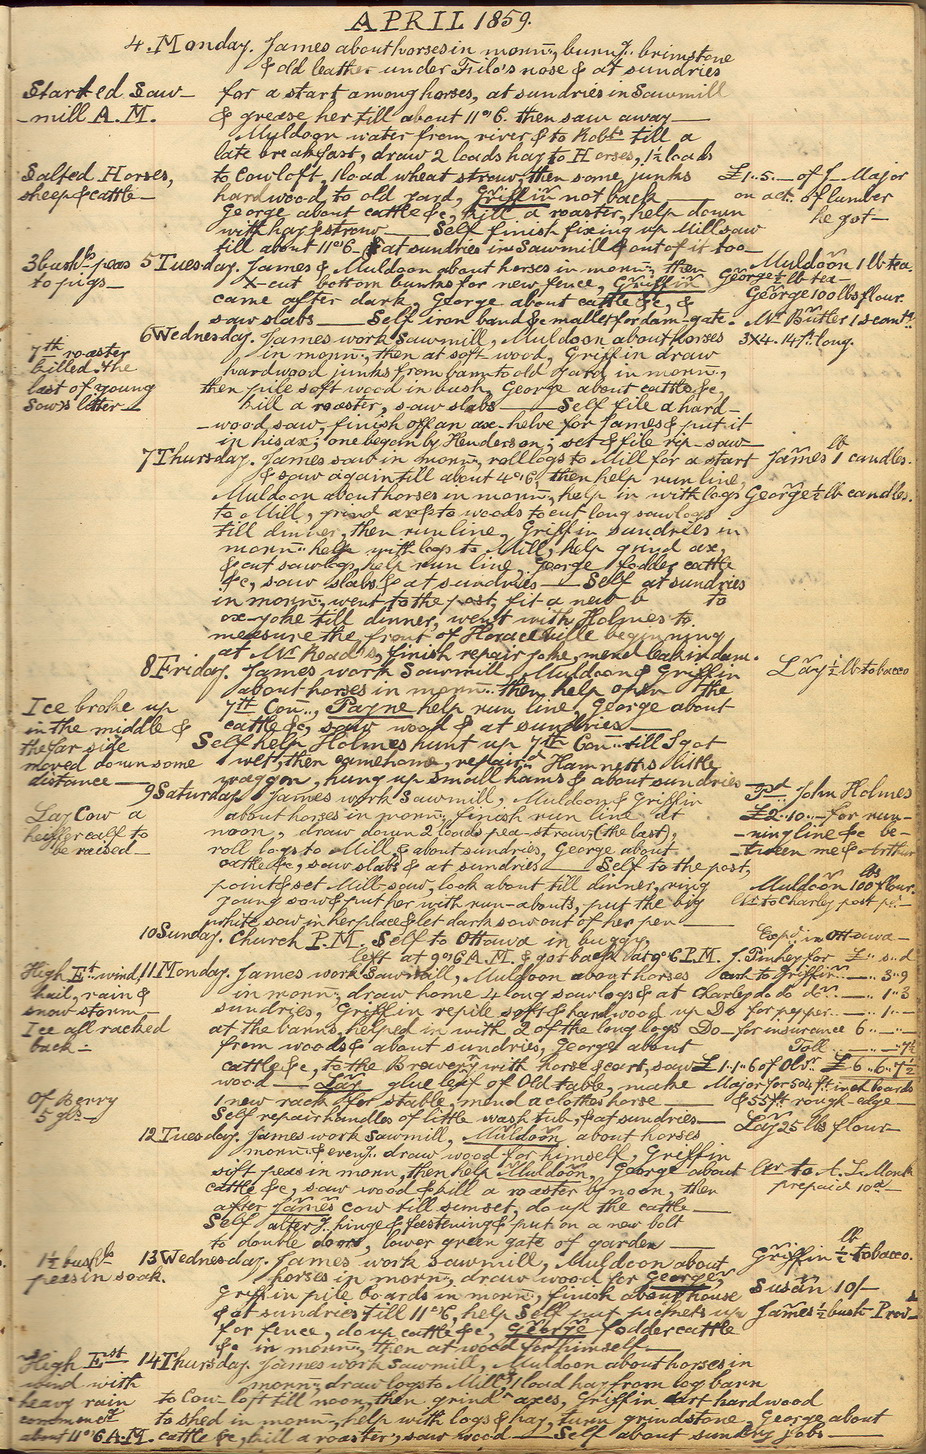 APRIL 1859.
4. Monday. James about horses in mornḡ., burnḡ. brimstone
& old leather under Filo's nose & at sundries
Started Saw-
for a start among horses, at sundries in Sawmill
-mill A.M.
& grease her till about 11"6. then saw away —
Muldoon water from river & to Robts till a
late breakfast, draw 2 loads hay to Horses, 1½ loads
Salted Horses,
to Cow loft, 1 load wheat straw, then some junks
£1..5..— of J— Major
sheep & cattle —
hardwood, to old yard, Griffin not back —
on act. of lumber
George about cattle &c, kill a roaster, help down
he got —
with hay & straw — Self finish fixing up Mill saw
till about 11"6 — & at sundries in Sawmill & out of it too —
3 bushls peas
5 Tuesday. James & Muldoon about horses in mornḡ., then
Muldoon 1 lb tea.
to pigs —
X-cut bottom bunks for new fence, Griffin
George ½ lb tea —
came after dark, George about cattle &c, &
George 100 lbs flour.
saw slabs — Self iron band &c mallet for dam-gate.
Mr Butler 18 cants.
6 Wednesday. James work Sawmill, Muldoon about horses
3X4. 14ft. long.
7th roaster
in mornḡ., then at soft wood, Griffin draw
killed. the
hardwood junks from barn to old yard in mornḡ.,
last of young
then pile soft wood in bush, George about cattle &c,
Sow's litter —
kill a roaster, saw slabs — Self file a hard-
-wood saw, finish off an ax-helve for James & put it
in his ax; one began by Henderson; set & file rip-saw —
7 Thursday. James saw in mornḡ., roll logs to Mill for a start
James 1 lb candles.
& saw again till about 4"6, then help run line,
Muldoon about horses in mornḡ., help in with logs
George ½ lb candles.
to Mill, grind ax & to woods to cut long sawlogs
till dinner, then run line, Griffin sundries in
mornḡ. help with logs to Mill, help grind ax,
& cut sawlogs, help run line, George fodder cattle
&c, saw slabs & at sundries — Self at sundries
in mornḡ., went to the post, fit a new b to
ox-yoke till dinner, went with Holmes to
measure the front of Horaceville beginning
at Mr Read's, finish repair yoke, mend leak in dam.
8 Friday. James work Sawmill, Muldoon & Griffin
Lay ½ lb tobacco
about horses in mornḡ. then help open the
Ice broke up
7th Con., Payne help run line, George about
in the middle &
cattle &c, saw wood & at sundries —
the far side
Self help Holmes hunt up 7th Con. till I got
moved down some
wet, then came home, repaird. Hamnett's little
distance —
waggon, hung up small hams & about sundries —
9 Saturday. James work Sawmill, Muldoon & Griffin
Pd. John Holmes
Lay Cow a
about horses in mornḡ., finish run line at
£2..10..— for run-
heiffer calf to
noon, draw down 2 loads pea-straw, (the last),
-ning line &c be-
be raised —
roll logs to Mill & about sundries, George about
-tween me & Arthur
cattle &c, saw slabs & at sundries — Self to the post,
point & set Mill-saw, look about till dinner, ring
Muldoon 100 lbs flour.
young sow & put her with run-abouts, put the big
white sow in her place & let dark sow out of her pen —
10 Sunday. Church P.M. Self to Ottawa in buggy,
Expd. in Ottawa —
left at 9"6 A.M. & got back at 9"6 P.M.
J. Pinhey for £.. s.. d
High Est. wind,
11 Monday. James work Sawmill, Muldoon about horses
cash to Griffin ..—.. 3..9
hail, rain &
in mornḡ., draw home 4 long sawlogs & at
Charley do do do ..—.. 1..3
snow storm —
sundries, Griffin repile soft & hardwood up
Do for pepper ..—.. 1..—
Ice all rached
at the barns, helped in with 2 of the long logs
Do — for insurance 6..—..—
back —
from woods & about sundries, George about
Toll ..—..—..7½
cattle &c, to the Brewery with horse & cart, saw
£1..1..6 of Olvr. £6..6..7½
wood — Lay glue leaf of Old table, make
Major for 504 ft inch boards
Of Berry
1 new rack for stable, mend a clothes horse —
& 55 ft. rough-edge —
5 gls —
Self repair handles of little wash tub, & at sundries —
Lay 25 lbs flour —
12 Tuesday. James work Sawmill, Muldoon about horses
mornḡ. & eveng. draw wood for himself, Griffin
sift peas in mornḡ, then help Muldoon, George about
cattle &c, saw wood & kill a roaster by noon, then
prepaid 10d —
after James cow till sunset, do up the cattle —
Self alterḡ. hinge & fastening & put on a new bolt
to double doors, lower green gate of garden —
1½ bushls
13 Wednesday. James work Sawmill, Muldoon about
Griffin ½ lb tobacco.
peas in soak.
horses in mornḡ., draw wood for George,
Susan 10/—
Griffin pile boards in mornḡ., finish about house
& at sundries till 11"6, help Self put pickets up
James ½ bush-
for fence, do up cattle &c, George fodder cattle
&c in mornḡ., then at wood for himself —
High Est
14 Thursday. James work Sawmill, Muldoon about horses in
wind with
mornḡ., draw logs to Mill, 1 load hay from log barn
heavy rain
to Cow loft till noon, then grind axes, Griffin cart hardwood
commencd
to shed in mornḡ., help with logs & hay, turn grindstone, George about
about 11"6 A.M.
cattle &c, kill a roaster, saw wood — Self about sundry jobs —